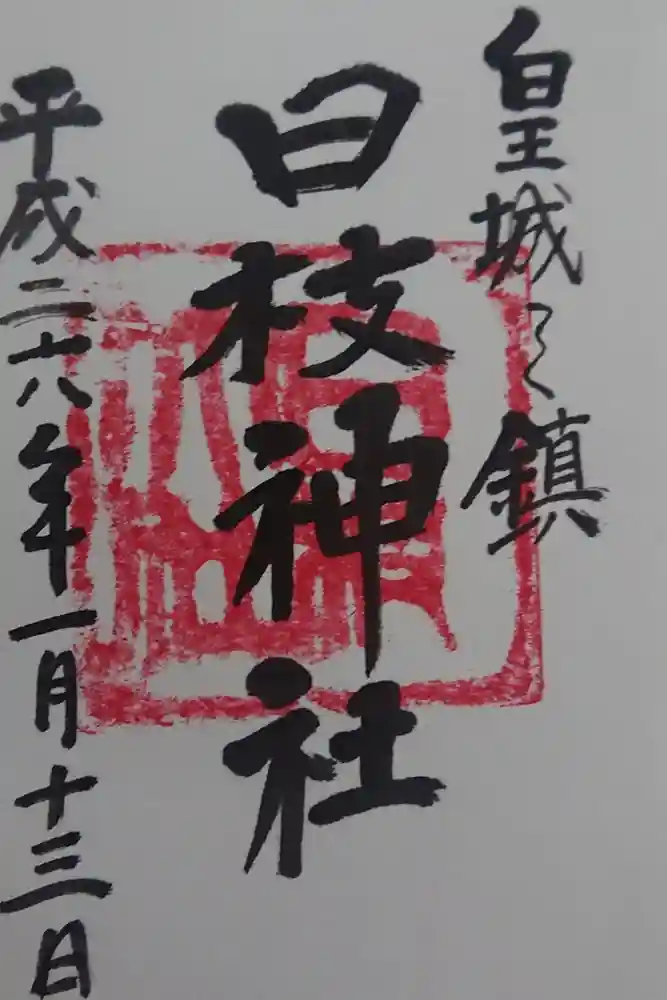 皇城之鎮
日枝神社
平成二六年一月十三日